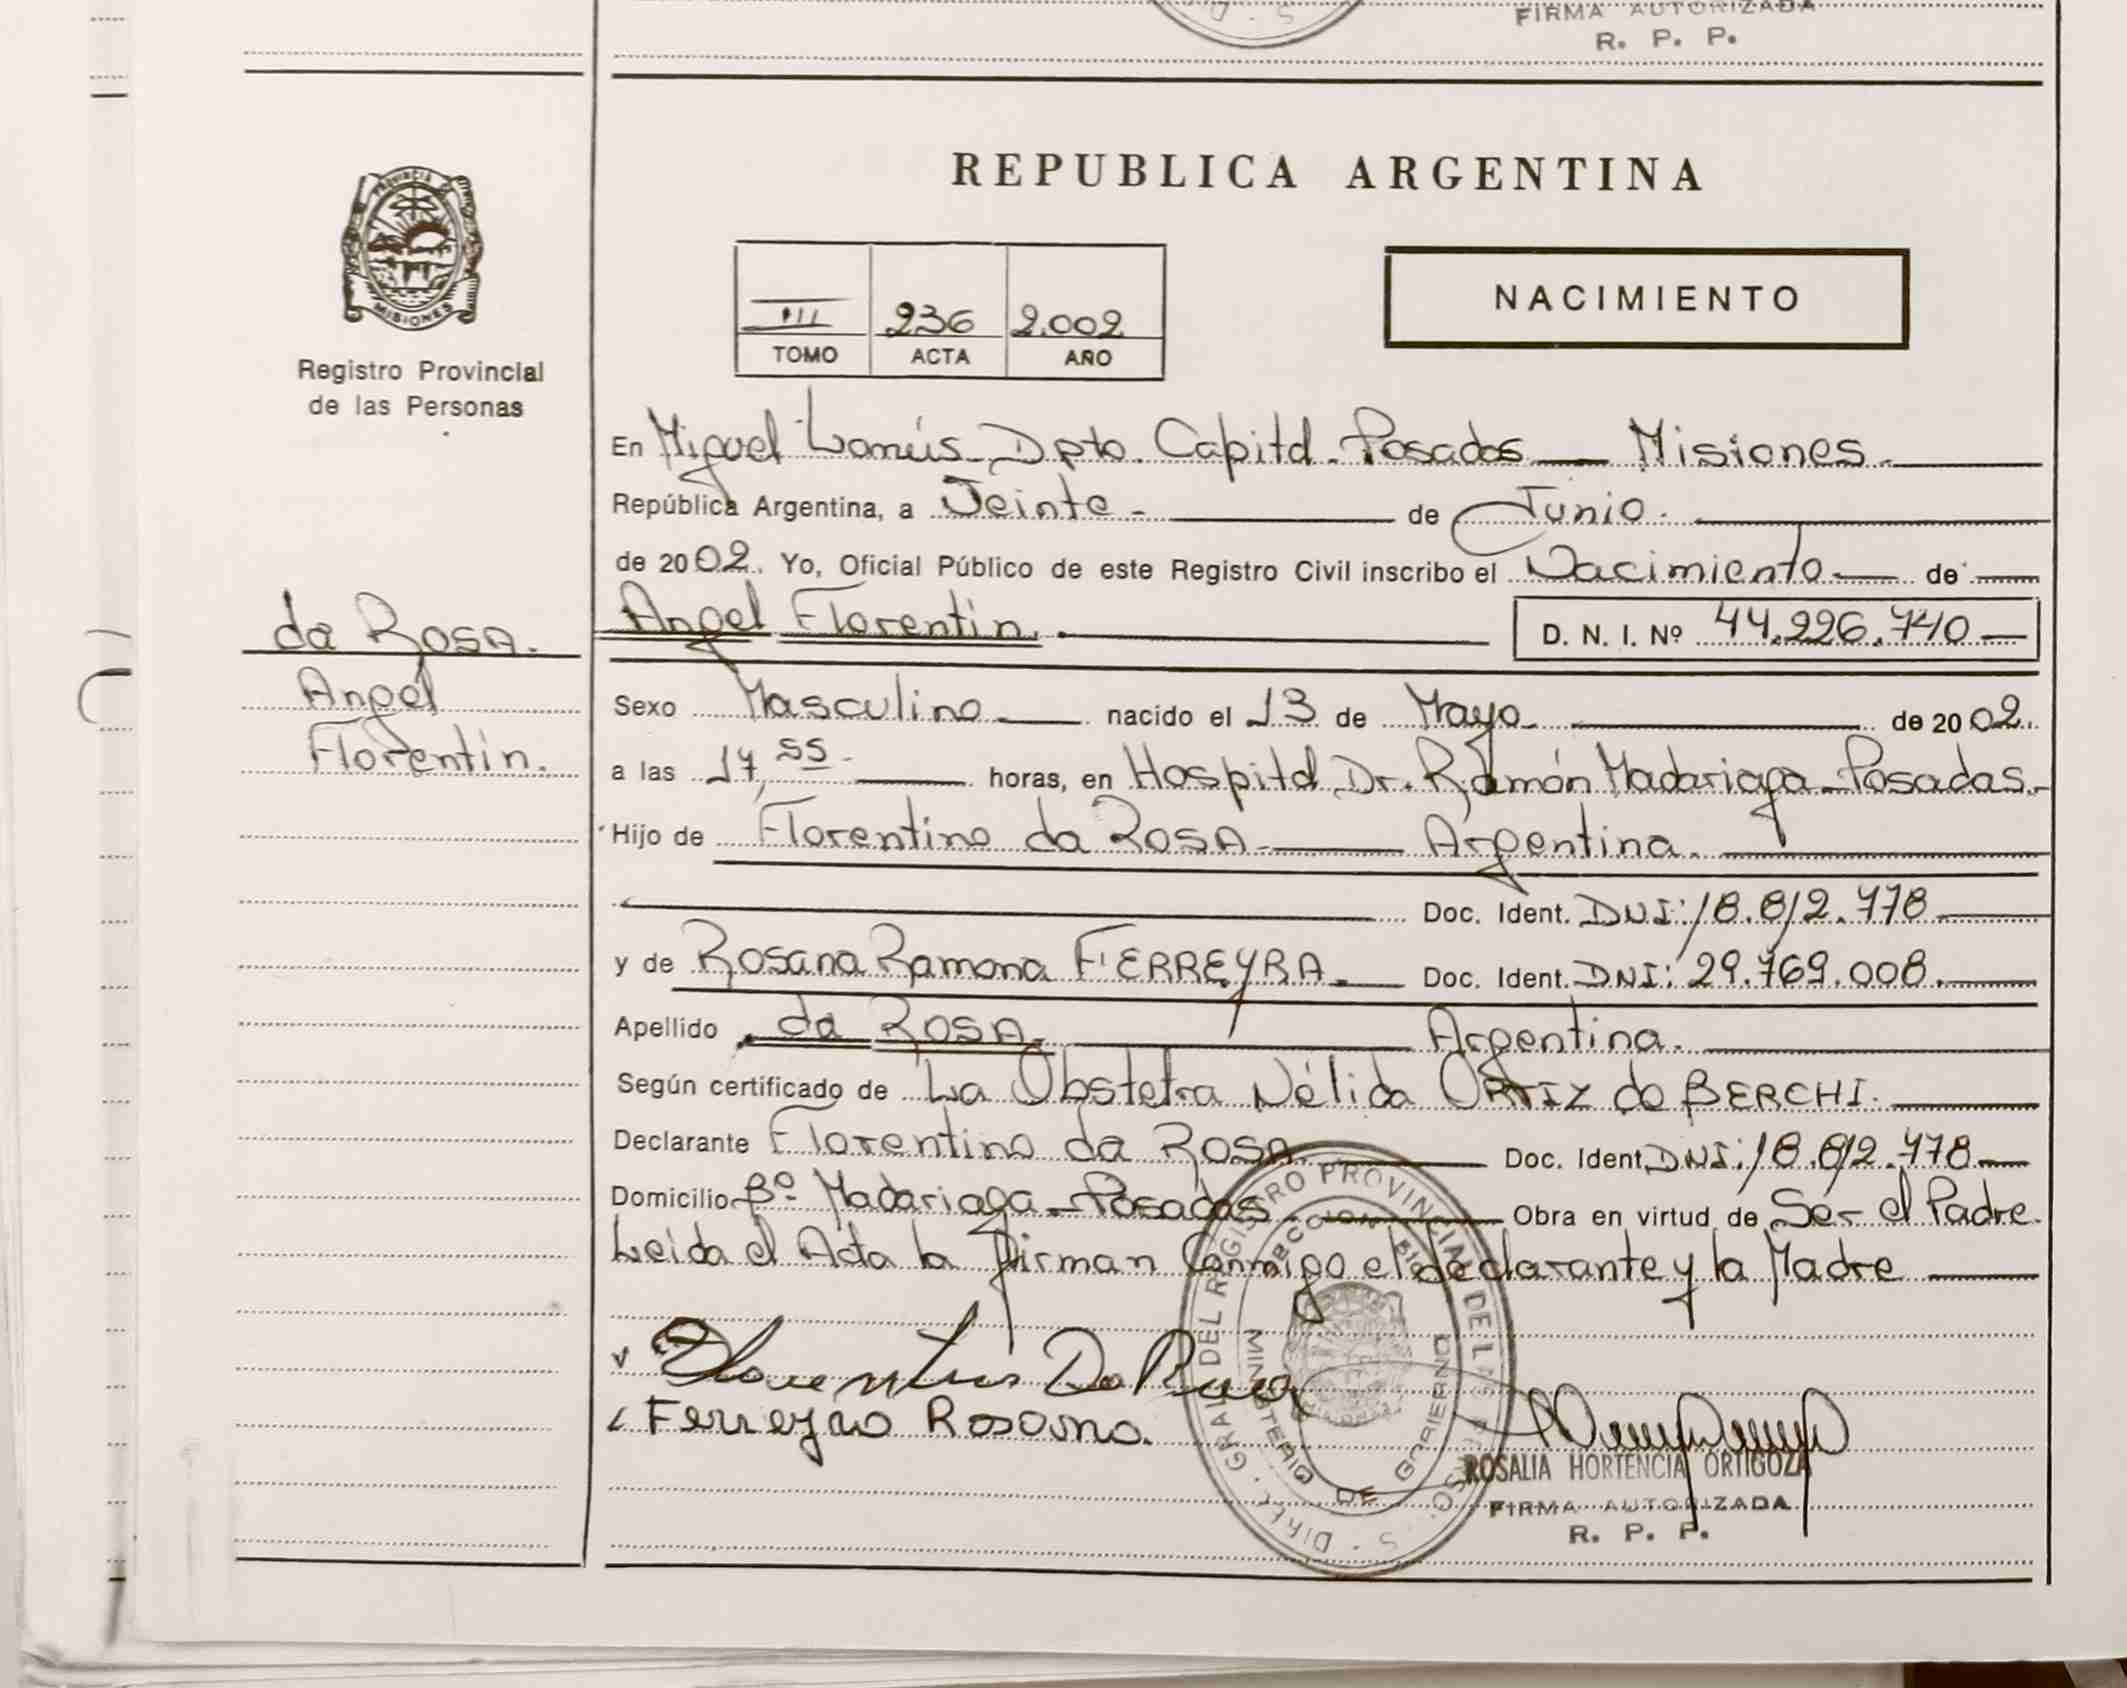 FIRMA AUTORIZADA
R. P. P.
PROVINCIA DE
MISIONES
Registro Provincial
de las Personas
REPUBLICA ARGENTINA
III 236 2.002
TOMO ACTA AÑO
NACIMIENTO
En Miguel Lanús - Dpto. Capital - Posadas — Misiones.
República Argentina, a Veinte - de Junio.
de 2002. Yo, Oficial Público de este Registro Civil inscribo el Nacimiento — de
da ROSA.
Angel
Florentin.
Angel Florentin.
D. N. I. Nº 44.226.740 —
Sexo Masculino — nacido el 13 de Mayo - de 2002.
a las 17,55 - horas, en Hospital Dr. Ramón Madariaga - Posadas.-
Hijo de Florentino da ROSA - Argentina.
Doc. Ident. DNI: 18.812.778
y de Rosana Ramona FERREYRA. Doc. Ident. DNI: 29.769.008.
Apellido da ROSA. Argentina.
Según certificado de La Obstetra Nélida ORTIZ de BERCHI.
Declarante Florentino da ROSA. Doc. Ident. DNI: 18.812.778
Domicilio Bº Madariaga - Posadas Obra en virtud de Ser el Padre.
Leida el Acta la firman Conmigo el declarante y la Madre
Ferreyra Rosana.
DIREC. GRAL DEL REGISTRO PROVINCIAL DE LAS PERSONAS
MINISTERIO DE GOBIERNO
ROSALIA HORTENCIA ORTIGOZA
FIRMA AUTORIZADA
R. P. P.